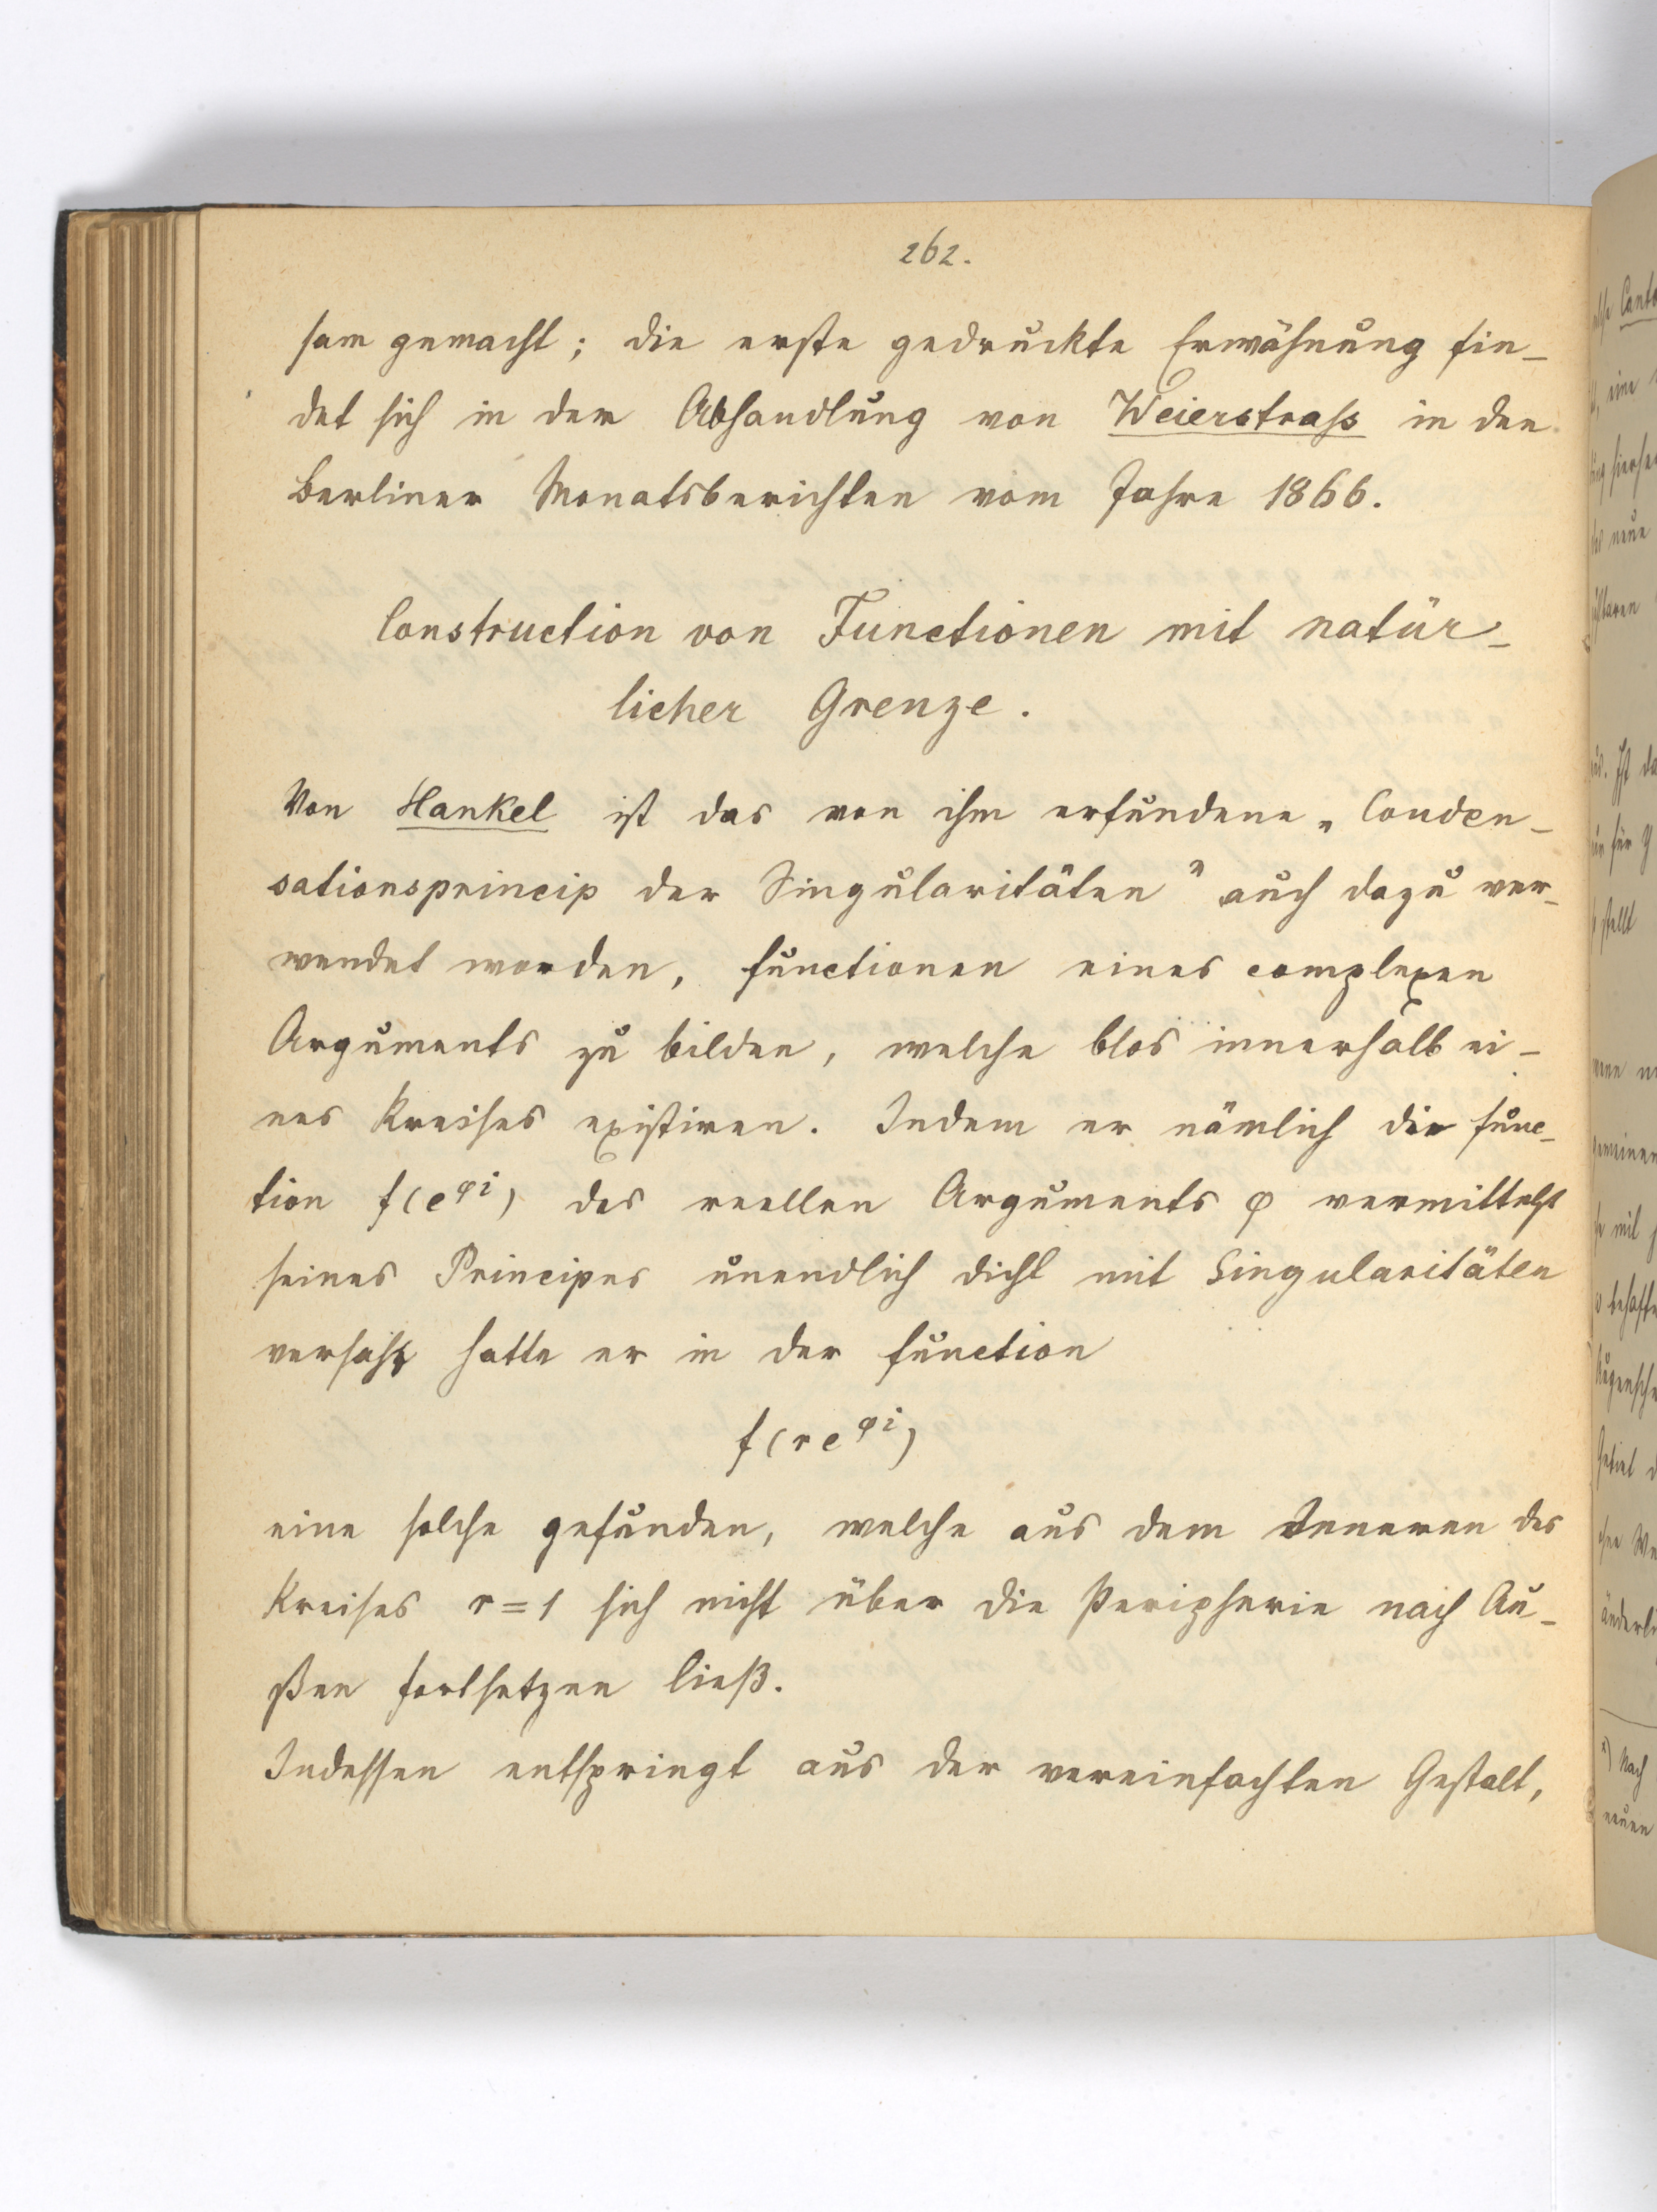 262.
sam gemacht; die erste gedruckte Erwähnung fin-
det sich in der Abhandlung von Weierstraß in den
Berliner Monatsberichten vom Jahre 1866.
Construction von Functionen mit natür-
licher Grenze.
Von Hankel ist das von ihm erfundene „Conden-
sationsprincip der Singularitäten" auch dazu ver-
wendet worden, Functionen eines complexen
Arguments zu bilden, welche blos innerhalb ei-
nes Kreises existiren. Indem er nämlich die Func-
tion f(e^{φi}) des reellen Arguments φ vermittelst
seines Principes unendlich dicht mit Singularitäten
versah, hatte er in der Function
f(re^{φi})
eine solche gefunden, welche aus dem Inneren des
Kreises r=1 sich nicht über die Peripherie nach Au-
ßen fortsetzen ließ.
Indessen entspringt aus der vereinfachten Gestalt,